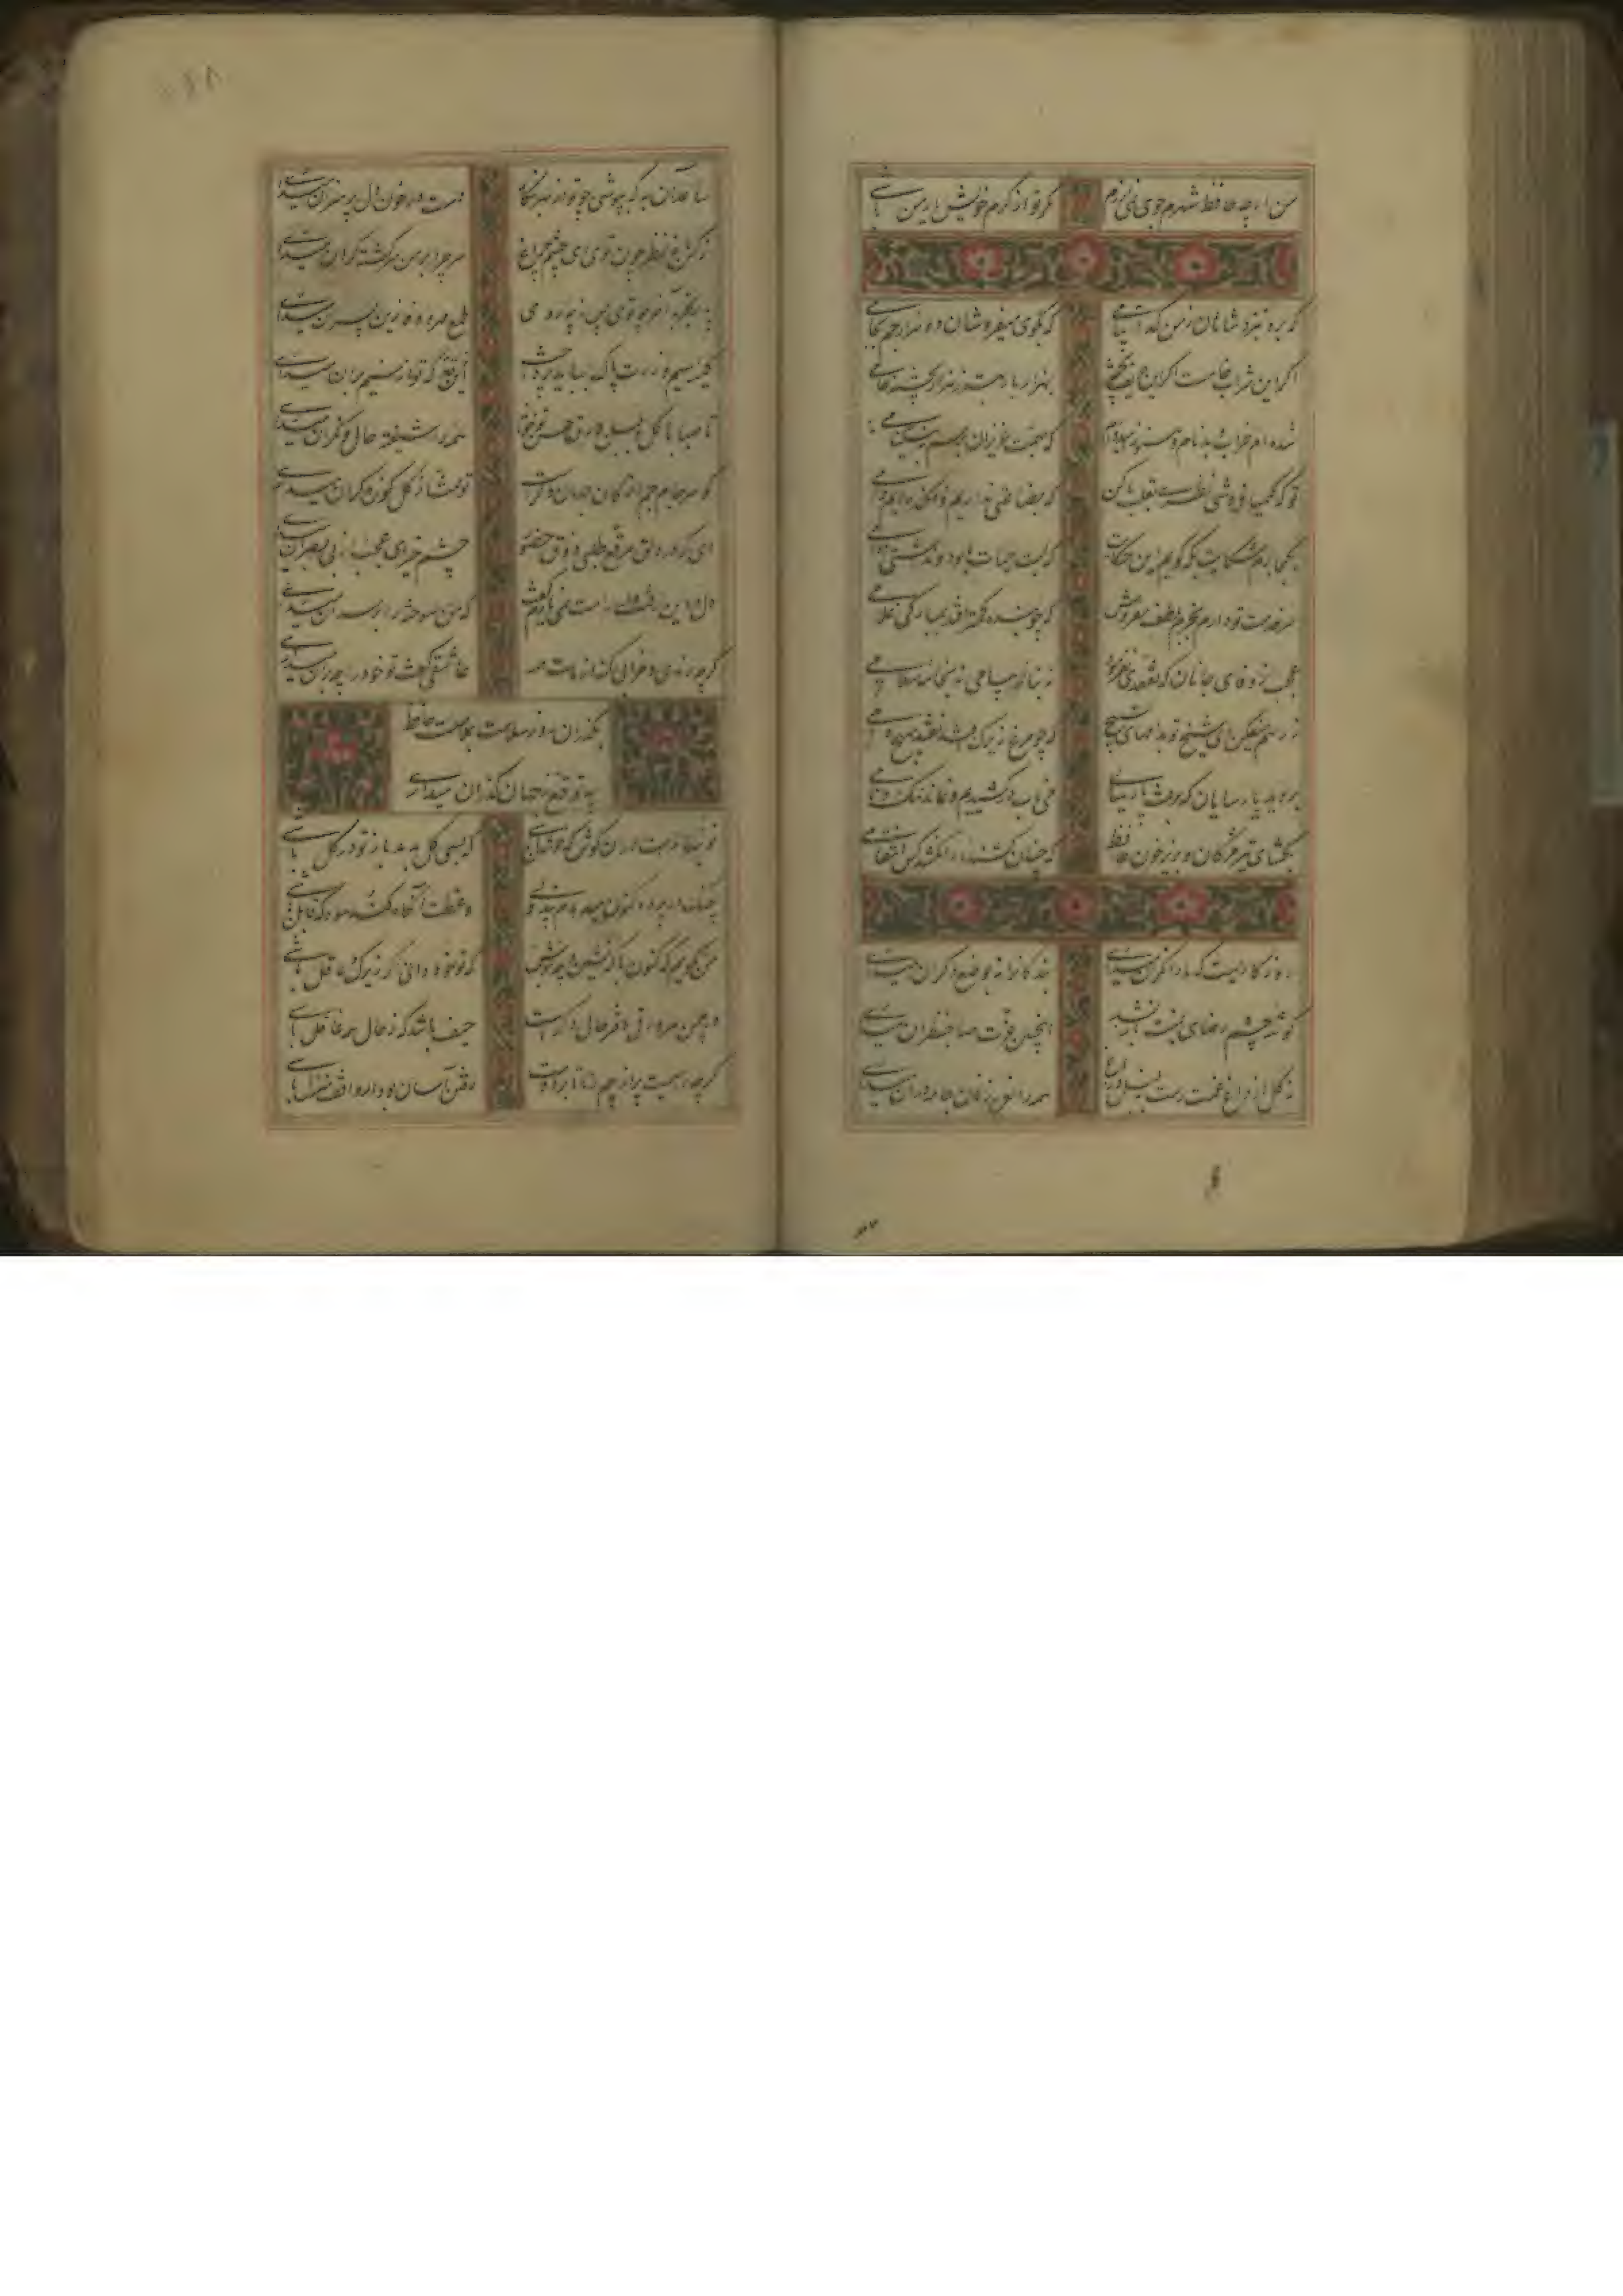 من ار چه حافظ شهرم جوی نمی‌ارزم مگر تو از کرم خویش یار من باشی
که برد بنزد شاهان ز من گدا پیامی که بکوی میفروشان دو هزار جم بجامی
اگر این شراب خامست اگر این حریف پخته بهزار بار بهتر ز هزار پخته خامی
شده‌ام خراب و بدنام و هنوز امیدوارم که بهمت عزیزان برسم به نیکنامی
تو که کیمیا فروشی نظری بقلب ما کن که بضاعتی نداریم و فکنده‌ایم دامی
بکجا برم شکایت بکه گویم این حکایت که لبت حیات ما بود و نداشتی دوامی
سر خدمت تو دارم بخرم بلطف و مفروش که چو بنده کمتر افتد بمبارکی غلامی
عجب از وفای جانان که تفقدی نفرمود نه بنامه پیامی نه بخامه سلامی
ز رهم میفکن ای شیخ تو بدانهای تسبیح که چو مرغ زیرک افتد نفتد بهیچ دامی
بروید پارسایان که برفت پارسایی می ناب درکشیدیم و نماند ننگ و نامی
بگشای تیر مژگان و بریز خون حافظ که چنان کشنده را نکشد کس انتقامی
روزگاریست که ما را نگران میداری بندگانرا نه بوضع دگران میداری
گوشه چشم رضایی بمنت باز نشد اینچنین عزت صاحب نظران میداری
نه گل از داغ غمت رست نه بلبل در باغ همه را نعره زنان جامه‌دران میداری
ساعد آن به که بپوشی چو تو از بهر نگار دست در خون دل پر هنران میداری
نرگس باغ نظر چون تویی ای چشم و چراغ سر چرا بر من سرگشته گران میداری
پدر تجربه آخر تویی ای دل ز چه روی طمع مهر و وفا زین پسران میداری
کیسه سیم و زرت پاک بباید پرداخت این طمع که تو از سیمبران میداری
تا صبا با گل و بلبل ورق حسن تو خواند همه را شیفته حال و نگران میداری
گوهر جام جم از کان جهان دگرست تو تمنا ز گل کوزه‌گران میداری
ای که در دلق مرقع طلبی ذوق حضور چشم خیری عجب از بی‌بصران میداری
گرچه رندی و خرابی گنه از ماست همه عاشقی گفت تو خود را بر آن میداری
مگذران روز سلامت بملامت حافظ
چه توقع ز جهان گذران میداری
نوبهارست در آن کوش که خوشدل باشی که بسی گل بدمد باز و تو در گل باشی
چنگ در پرده همین میدهدت پند ولی وعظت آنگاه کند سود که قابل باشی
من نگویم که کنون با که نشین و چه بنوش که تو خود دانی اگر زیرک و عاقل باشی
در چمن هر ورقی دفتر حالی دگرست حیف باشد که ز حال همه غافل باشی
گرچه راهیست پر از بیم ز ما تا بر دوست رفتن آسان بود ار واقف منزل باشی